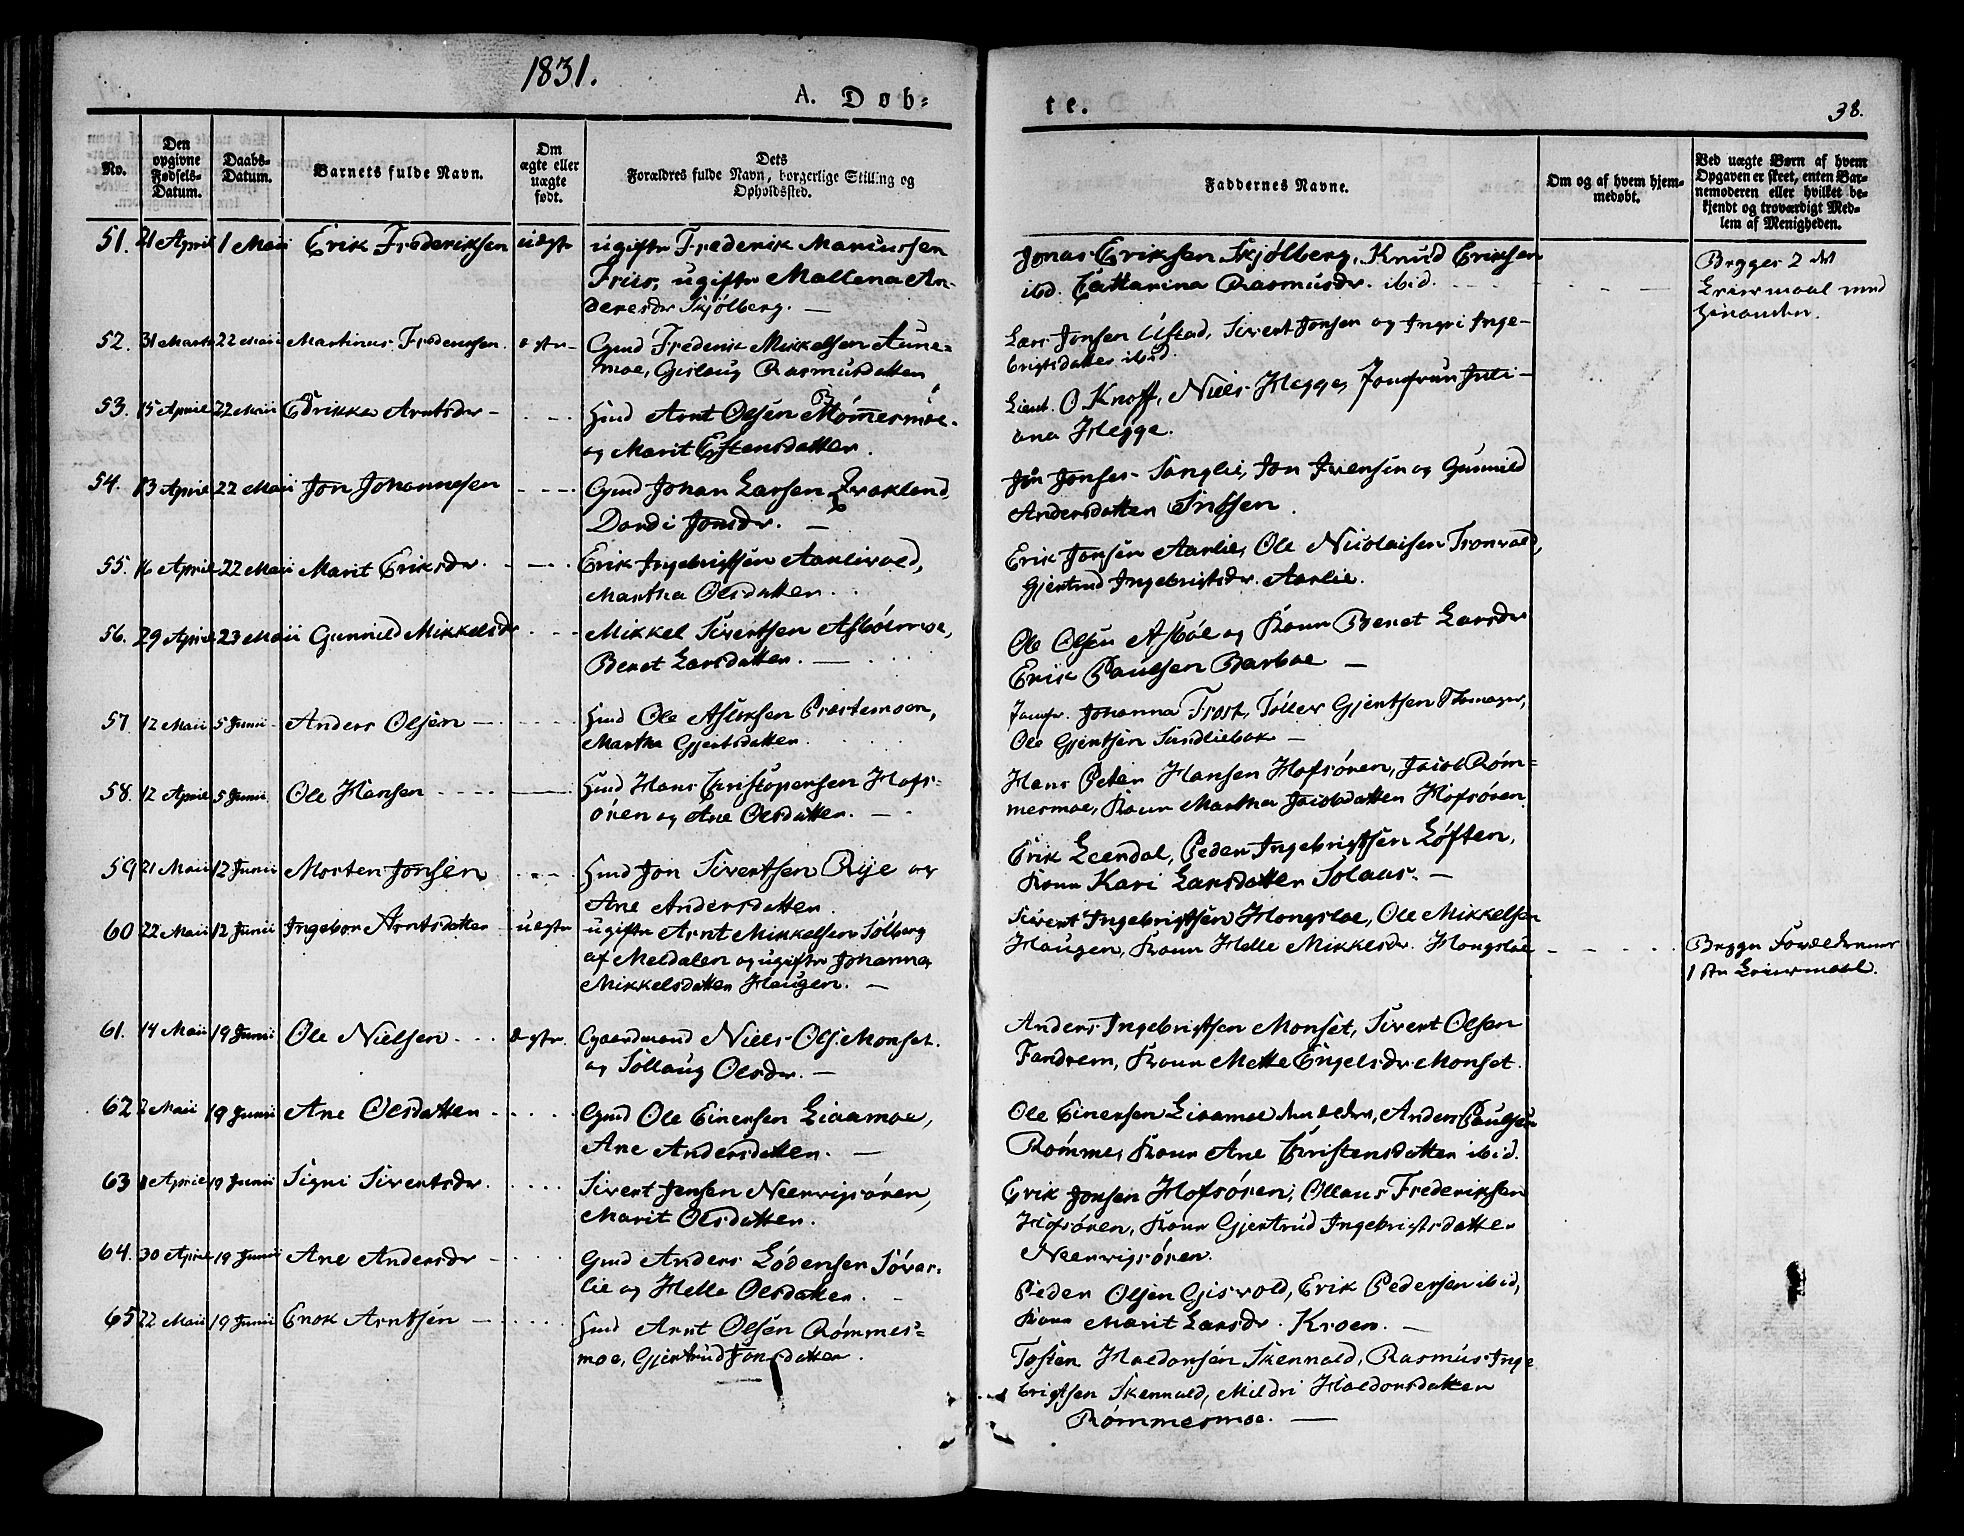 1831.
A. Døb-
te.
38.
No.
Den opgivne Fødsels-Datum.
Daabs-Datum.
Barnets fulde Navn.
Om ægte eller uægte født.
Dets Forældres fulde Navn, borgerlige Stilling og Opholdssted.
Faddernes Navne.
Om og af hvem hjemmedøbt.
Ved uægte Børn af hvem Opgaven er skeet, enten Barnemoderen eller hvilket bekjendt og troværdigt Medlem af Menigheden.
51. 21 April 1 Maii Erik Frederiksen uægte ugifte Frederik Marcussen
Friis, ugifte Mallena An-
dersdr Skjølberg. —
Jonas Eriksen Skjølberg, Knud Eriksen
ibd. Catharina Rasmusdr. ibid.
Begges 2 det
Leiermaal med
hinanden.
52. 31 Marts 22 Maii Martinus Fredericksen ægte Gmd Frederik Mikkelsen Aune-
moe, Gislaug Rasmusdatter
Lars Jonsen Ustad, Sivert Jonsen og Ingri Inge-
brigtsdatter ibid.
53. 15 April 22 Maii Edrikka Arntsdr - Hmd Arnt Olsen Rømmesmoe.
og Marit Estensdatter.
Lieut. O Knoff, Niels Hegge, Jomfrue Juli-
ana Hegge.
54. 13 April 22 Maii Jon Johannesen Gmd Johan Larsen Qvakland
Dordi Jonsdr. —
Jon Jonsen Sanglie, Jon Iversen og Gunnild
Andersdatter
55. 16 April 22 Maii Marit Eriksdr. Erik Ingebrigtsen Aarlivold,
Martha Olsdatter.
Erik Jonsen Aarlie, Ole Nicolaisen Tronvold,
Gjertrud Ingebrigtsdr. Aarlie.
56. 29 April 23 Maii Gunnild Mikkelsdr Mikkel Sivertsen Asbølmoe,
Beret Larsdatter. —
Ole Olsen Asbøl og Kone Beret Larsdr
Erik Paulsen Barboe —
57. 12 Maii 5 Junii Anders Olsen — Hmd Ole Aslaksen Prestemoen,
Martha Gjertsdatter.
Jomfr. Johanna Frost, Tøller Gjertsen
Ole Gjertsen Sundliebak —
58. 12 April 5 Junii Ole Hansen Hmd Hans Christopersen Hofs-
øren og Ane Olsdatter. —
Hans Peter Hansen Hofsøren, Jacob Røm-
mesmoe, Kone Martha Jacobsdatter Hofsøren
59 21 Maii 12 Junii Morten Jonsen Hmd Jon Sivertsen Rije og
Ane Andersdatter.
Erik Leerdal, Peder Ingebrigtsen Løften,
Kone Kari Larsdatter Solaas. —
60 22 Maii 12 Junii Ingebor Arntsdatter uægte ugifte Arnt Mikkelsen Sølberg
af Meldalen og ugifte Johanna
Mikkelsdatter Haugen. —
Sivert Ingebrigtsen Hongsloe, Ole Mikkelsen
Haugen, Kone Helle Mikkelsdr. Hongsloe
Begge Forældrenes
1ste Leiermaal.
61. 14 Maii 19 Junii Ole Nielsen ægte Gaardmand Niels Ols. Monset.
og Sollaug Olsdr. —
Anders Ingebrigtsen Monset, Sivert Olsen
Fandrem, Kone Mette Engelsdr Monset.
62 2 Maii 19 Junii Ane Olsdatter Gmd Ole Einersen Liaamoe,
Ane Andersdatter. —
Ole Einersen Liaamoe den ældre, Anders Paulsen
Rømme, Kone Ane Christensdatter ibid.
63 April 19 Junii Signi Sivertsdr. Sivert Jensen Neervigsøren,
Marit Olsdatter.
Erik Jonsen Hofsøren, Ollaus Frederiksen
Hofsøren, Kone Gjertrud Ingebrigtsdatter
Neervigsøren.
64. 30 April 19 Junii Ane Andersdr - Gmd Anders Lødensen Søvas-
lie og Helle Olsdatter.
Peder Olsen Gisvold, Erik Pedersen ibid,
Kone Marit Larsdr. Kroen. —
65 22 Maii 19 Junii Enok Arntsen — Hmd Arnt Olsen Rømmes-
moe, Gjertrud Jonsdatter.
Tosten Haldorsen Skenvald, Rasmus Inge
brigtsen Skenvald, Mildri Haldorsdatter
Rømmesmoe. —